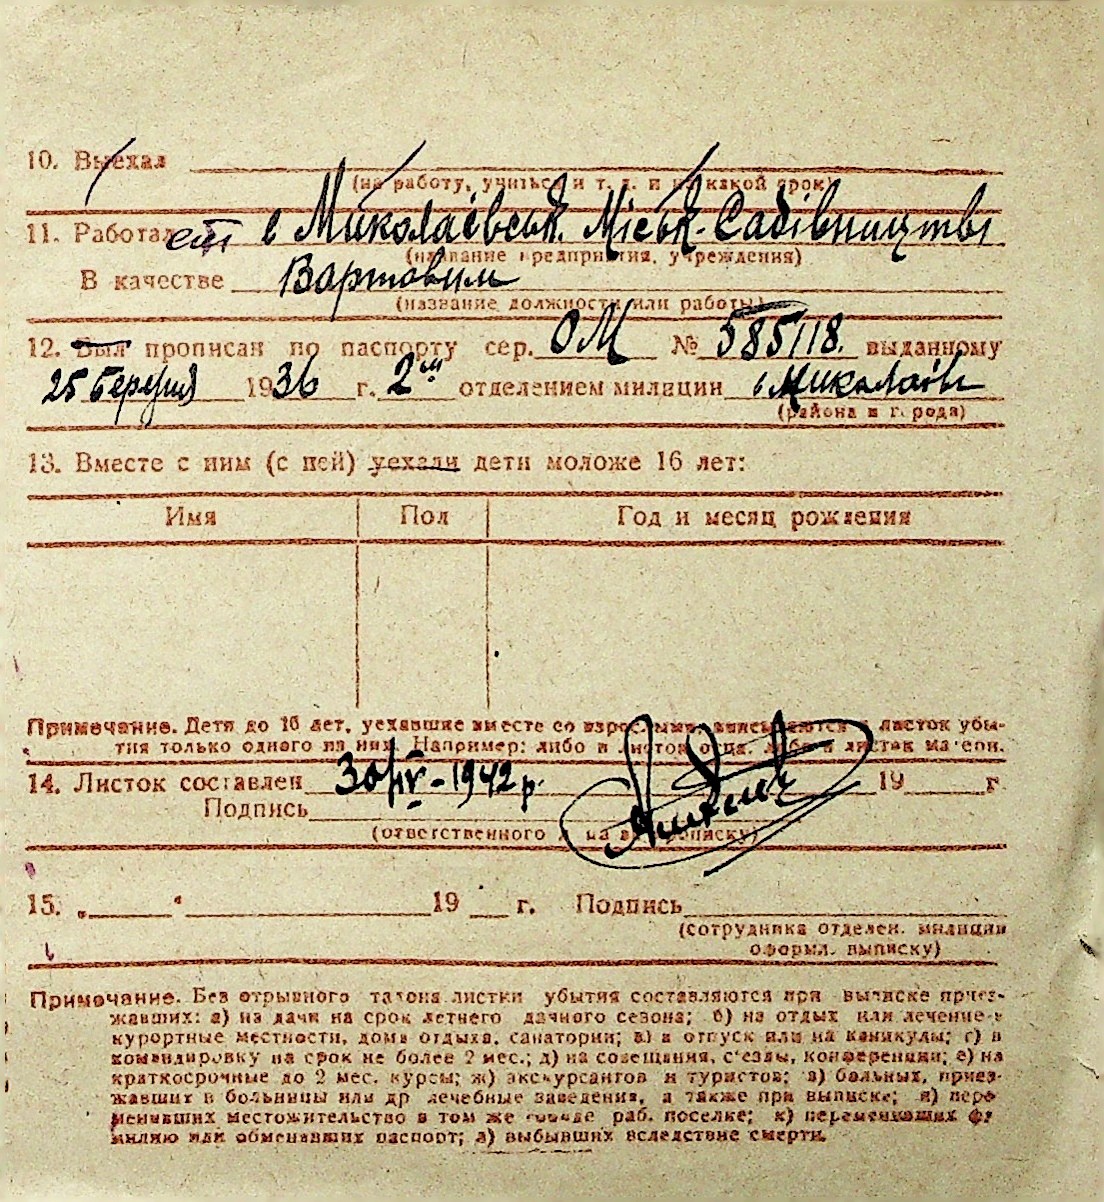 10. Выехал
(на работу, учиться и т. д. и на какой срок)
11. Работал в Миколаївськ. Міськ. Садівництві
(название предприятия, учреждения)
В качестве Вартовим
(название должности или работы)
12. Был прописан по паспорту сер. ОМ № 585118. выданному
25 березня 1936 г. 2м отделением милиции Миколаїв
(района и города)
13. Вместе с ним (с ней) уехали дети моложе 16 лет:
Имя Пол Год и месяц рождения
Примечание. Дети до 16 лет, уехавшие вместе со взрослыми, вписываются в листок убы-
тия только одного из них. Например: либо в листок отца, либо в листок матери.
14. Листок составлен 30/IV-1942 р. 19 г.
Подпись
(ответственного за выписку)
15. „ “ 19 г. Подпись
(сотрудника отделен. милиции
оформл. выписку)
Примечание. Без отрывного талона листки убытия составляются при выписке приез-
жавших: а) на дачи на срок летнего дачного сезона; б) на отдых или лечение в
курортные местности, дома отдыха, санатории; в) в отпуск или на каникулы; г) в
командировку на срок не более 2 мес.; д) на совещания, с'езды, конференции; е) на
краткосрочные до 2 мес. курсы; ж) экскурсантов и туристов; з) больных, приез-
жавших в больницы или др лечебные заведения, а также при выписке; и) пере
менивших местожительство в том же городе раб. поселке; к) переменивших фа
милию или обменявших паспорт; л) выбывших вследствие смерти.